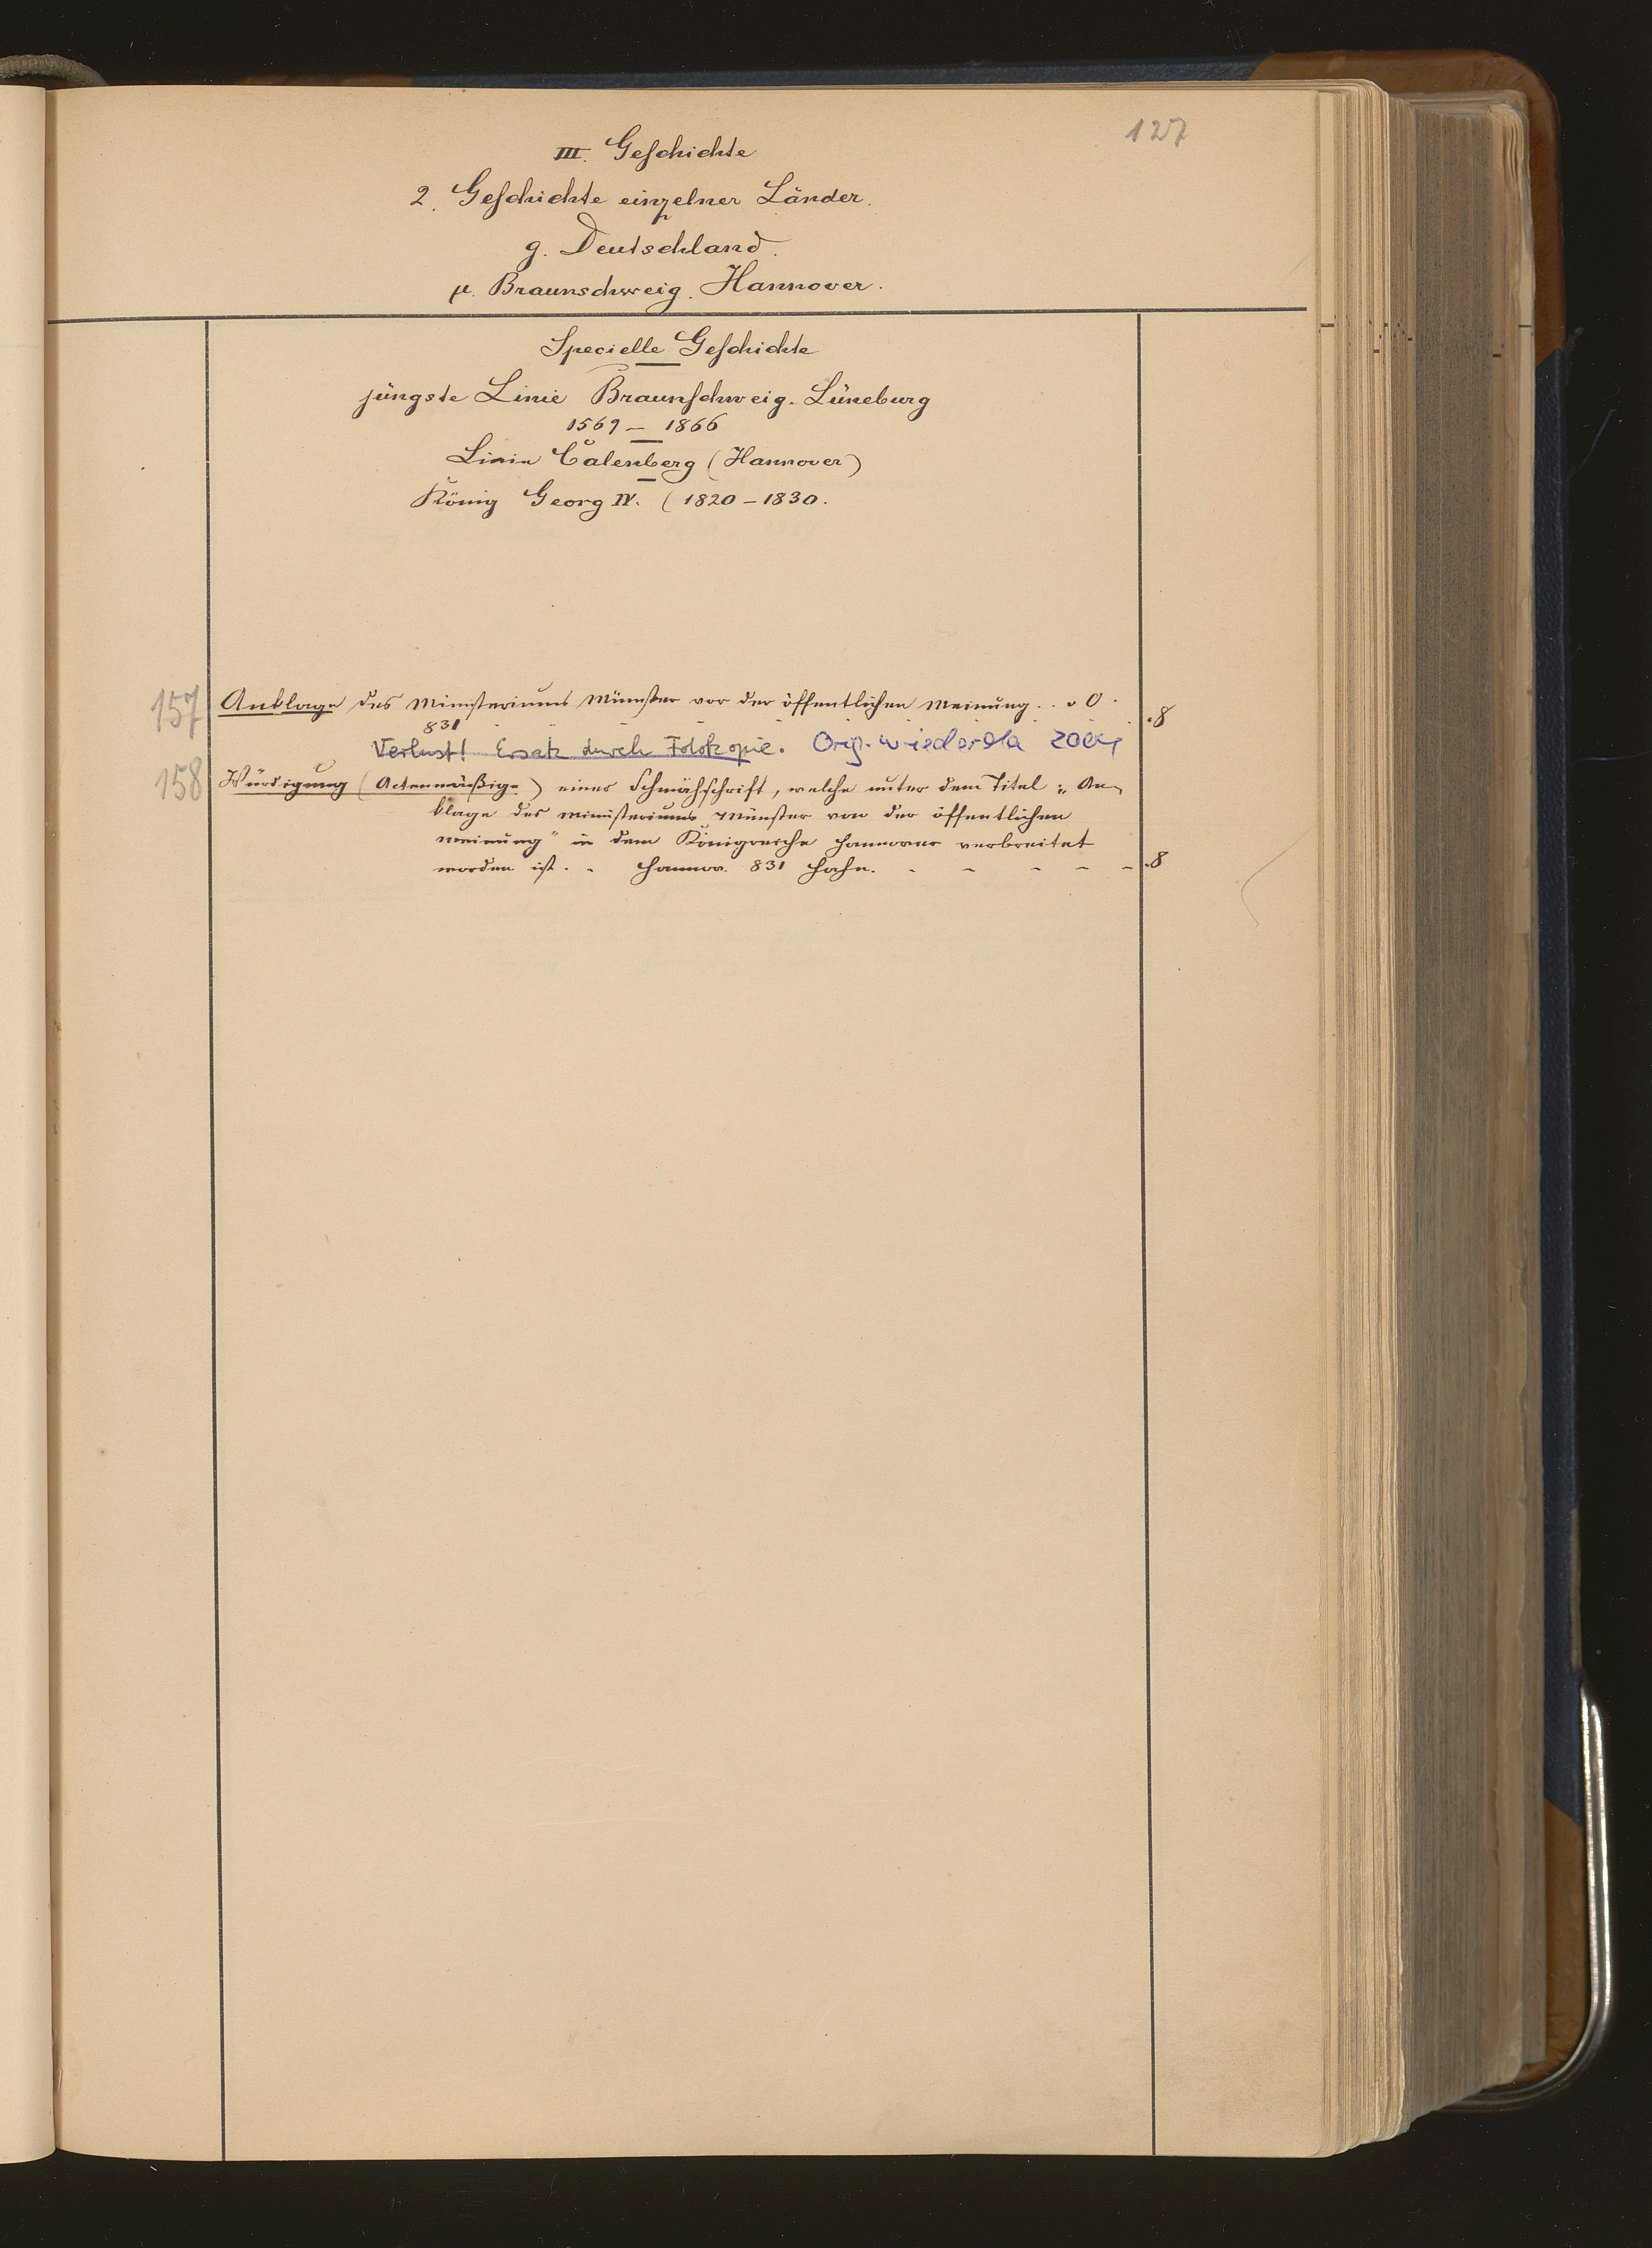 127
III. Geschichte
2. Geschichte einzelner Länder.
g. Deutschland.
μ. Braunschweig. Hannover.
Specielle Geschichte
jüngste Linie Braunschweig. Lüneburg
1569 – 1866
Linie Calenberg (Hannover)
König Georg IV. (1820 – 1830.
157 Anklage des Ministeriums Münster vor der öffentlichen Meinung. . o O.
831 .8
Verlust! Ersatz durch Fotokopie. Orig. wieder da
158 Würdigung (Actenmäßige) einer Schmähschrift, welche unter dem Titel: „An-
klage des Ministeriums Münster von der öffentlichen
Meinung" in dem Königreiche Hannover verbreitet
worden ist. - Hannov. 831 Hahn. - - - - - .8